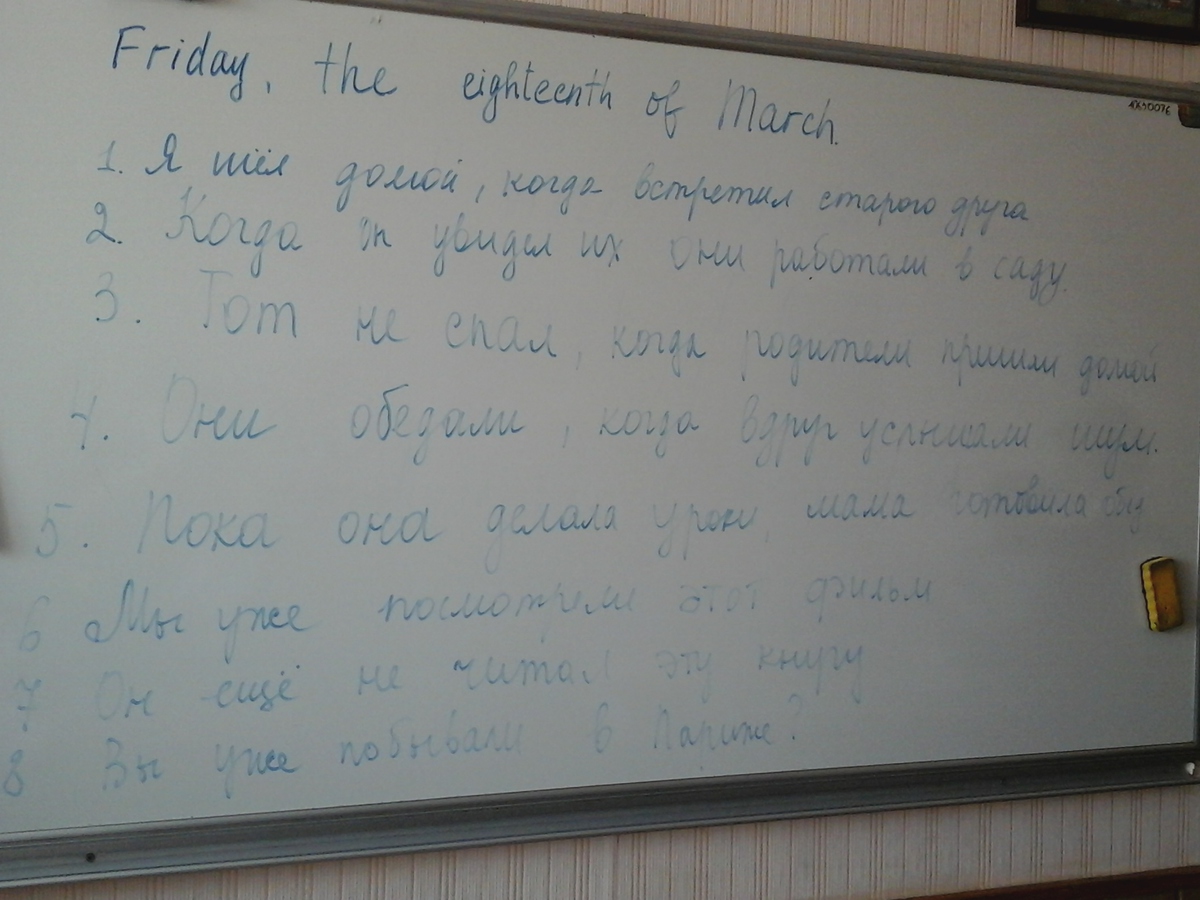 Friday, the eighteenth of March.
1. Я шёл домой, когда встретил старого друга
2. Когда он увидел их они работали в саду.
3. Том не спал, когда родители пришли домой
4. Они обедали, когда вдруг услышали шум.
5. Пока она делала уроки, мама готовила
6 Мы уже посмотрели этот фильм
7 Он ещё не читал эту книгу
8 Вы уже побывали в Париже?